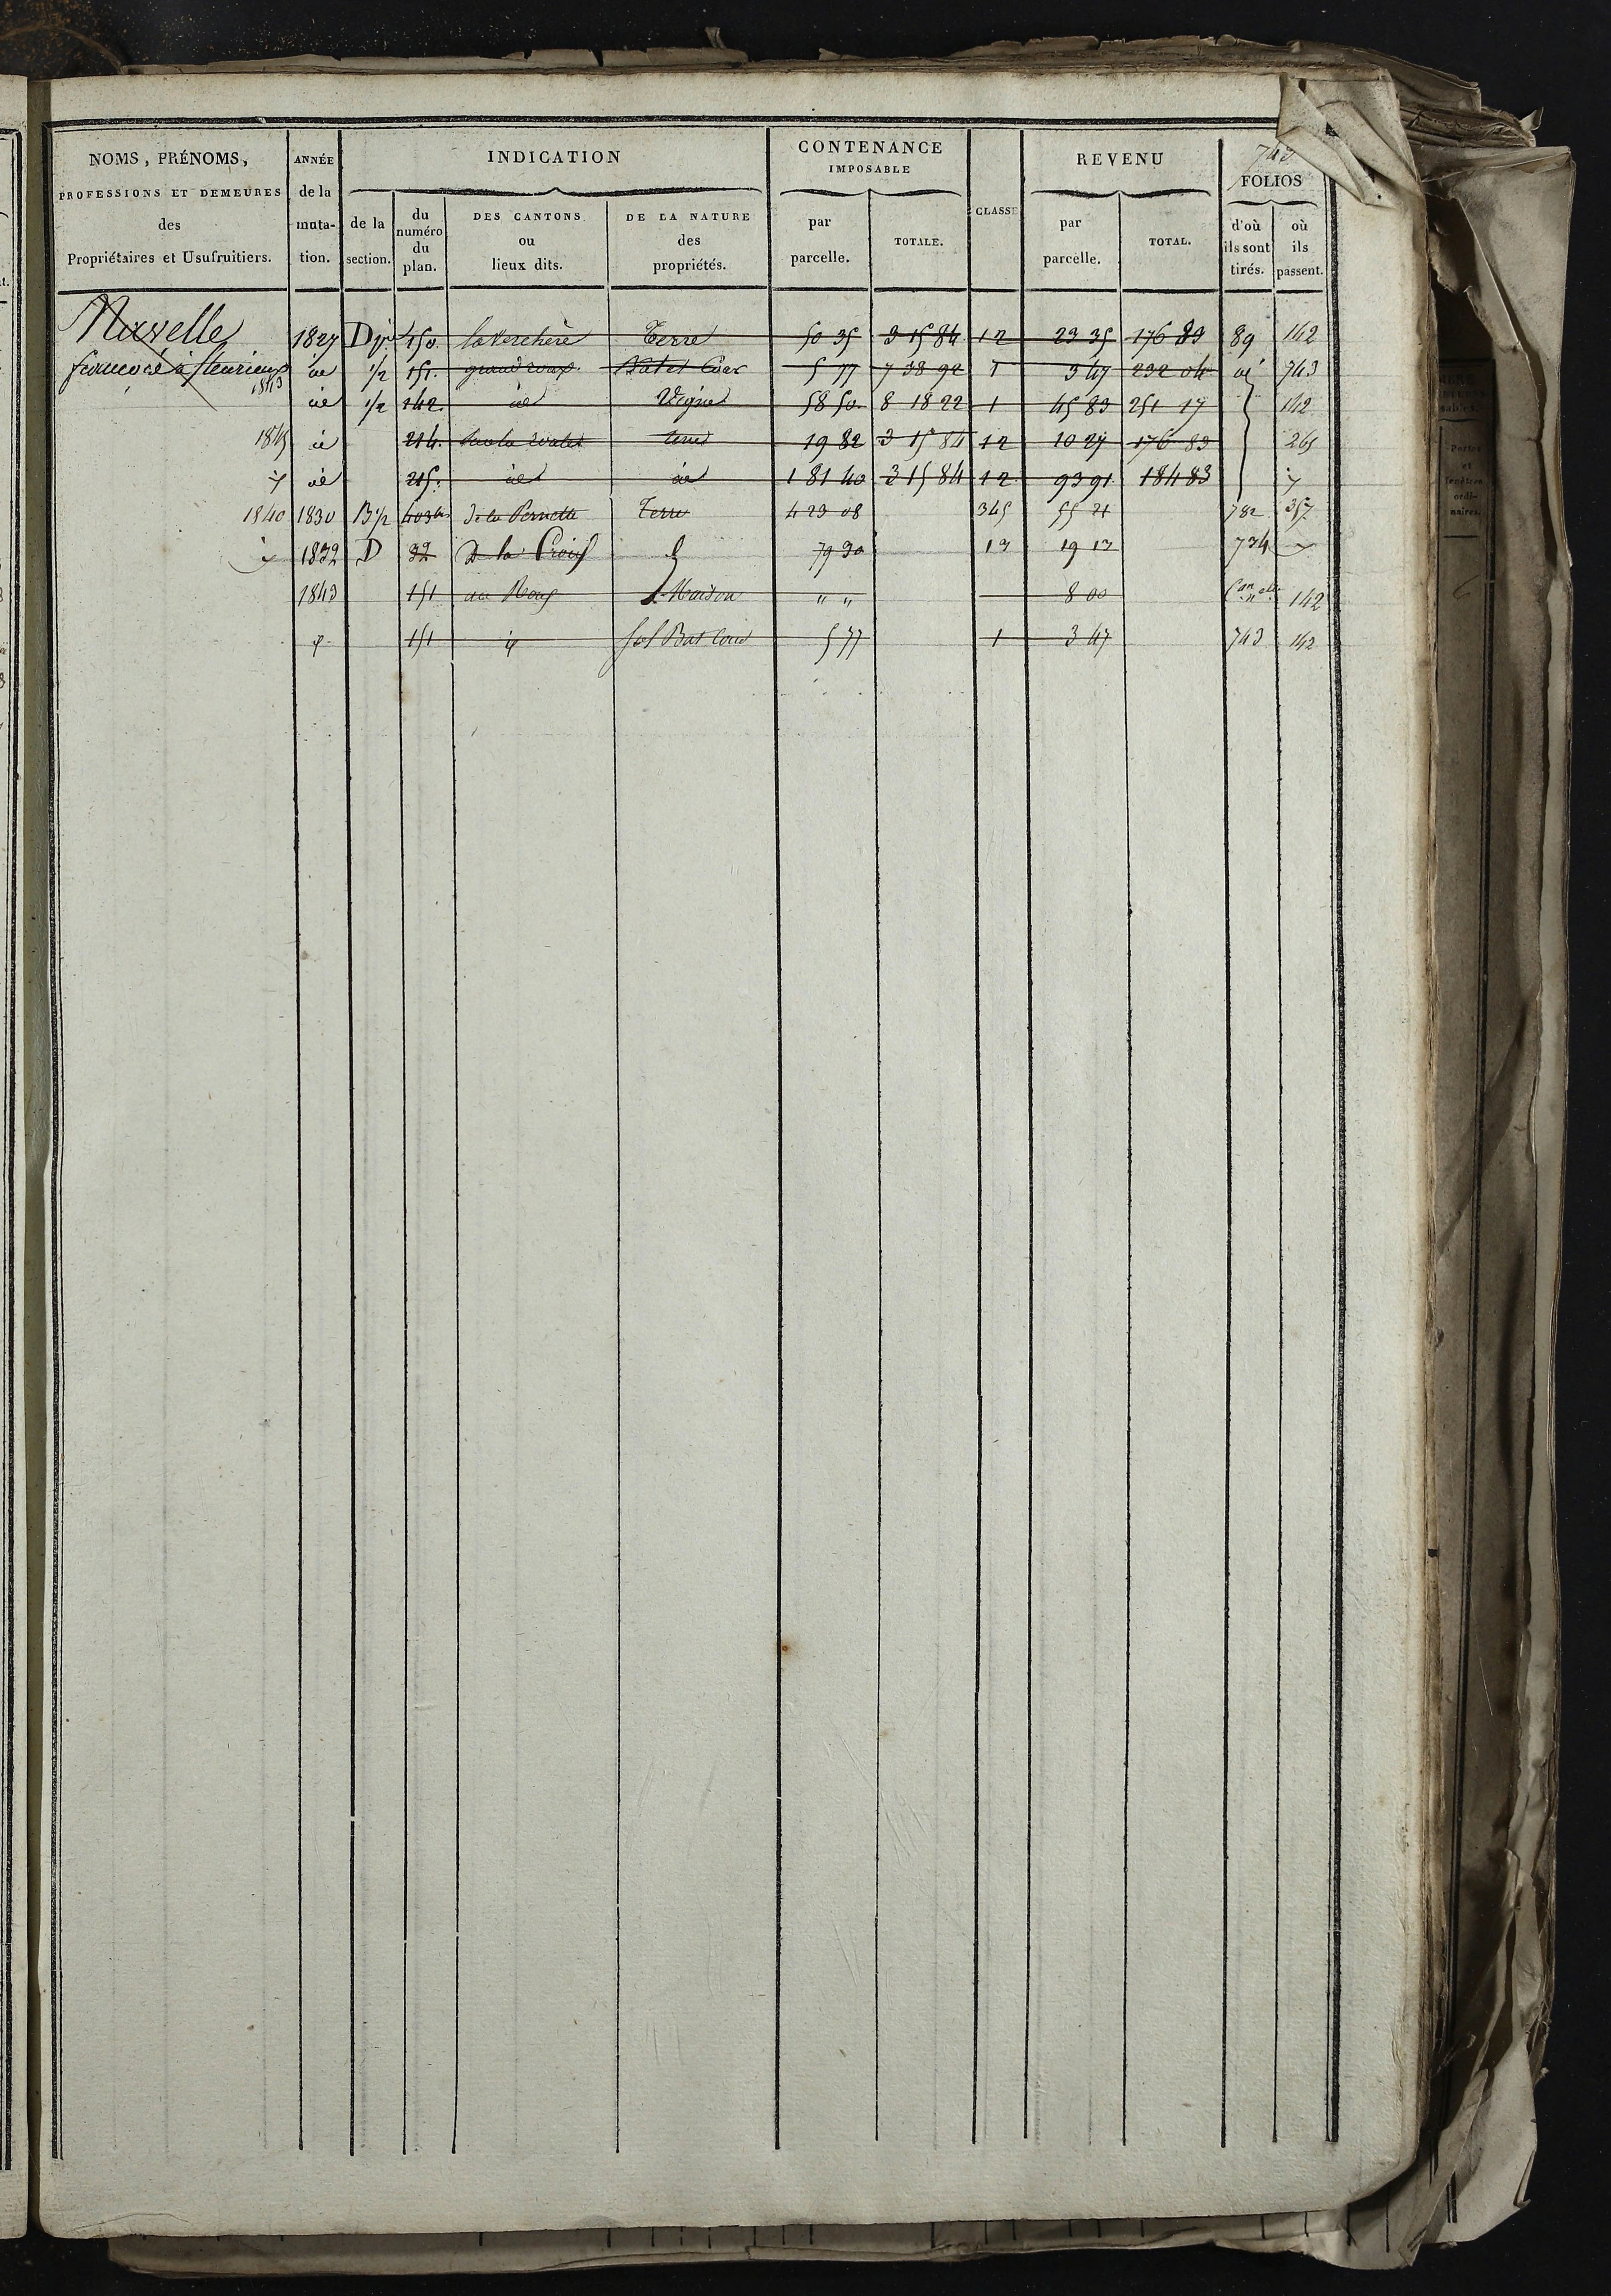 743
NOMS, PRÉNOMS,
PROFESSIONS ET DEMEURES
des
Propriétaires et Usufruitiers.
ANNÉE
de la
muta-
tion.
INDICATION
de la
section.
du
numéro
du
plan.
DES CANTONS
ou
lieux dits.
DE LA NATURE
des
propriétés.
CONTENANCE
IMPOSABLE
par
parcelle.
TOTALE.
CLASSE
REVENU
par
parcelle.
TOTAL.
FOLIOS
d'où
ils sont
tirés.
où
ils
passent.
1827 D 150. la Verchère Terre 50 35 3 15 84 12 23 35 176 83 89 142
françois à fleurieux id 1/2 151. grand roux Bat et Cour 5 77 7 38 92 1 3 47 232 04 id 743
1843 id 1/2 142. id Vigne 58 50 8 18 22 1 45 83 251 17 142
1845 id 214. terre 19 82 3 15 84 12 10 27 176 83 265
id 215. id id 1 81 40 3 15 84 12 93 91 184 83
1840 1830 B 1/2 403bis de la Pernette Terre 4 23 08 345 55 21 782 357
1832 D 32 De la Croix 79 30 13 19 13 734
1843 151 au Roux Maison " " 8 00 Con elle 142
151 Sol Bat Cour 5 77 1 3 47 743 142